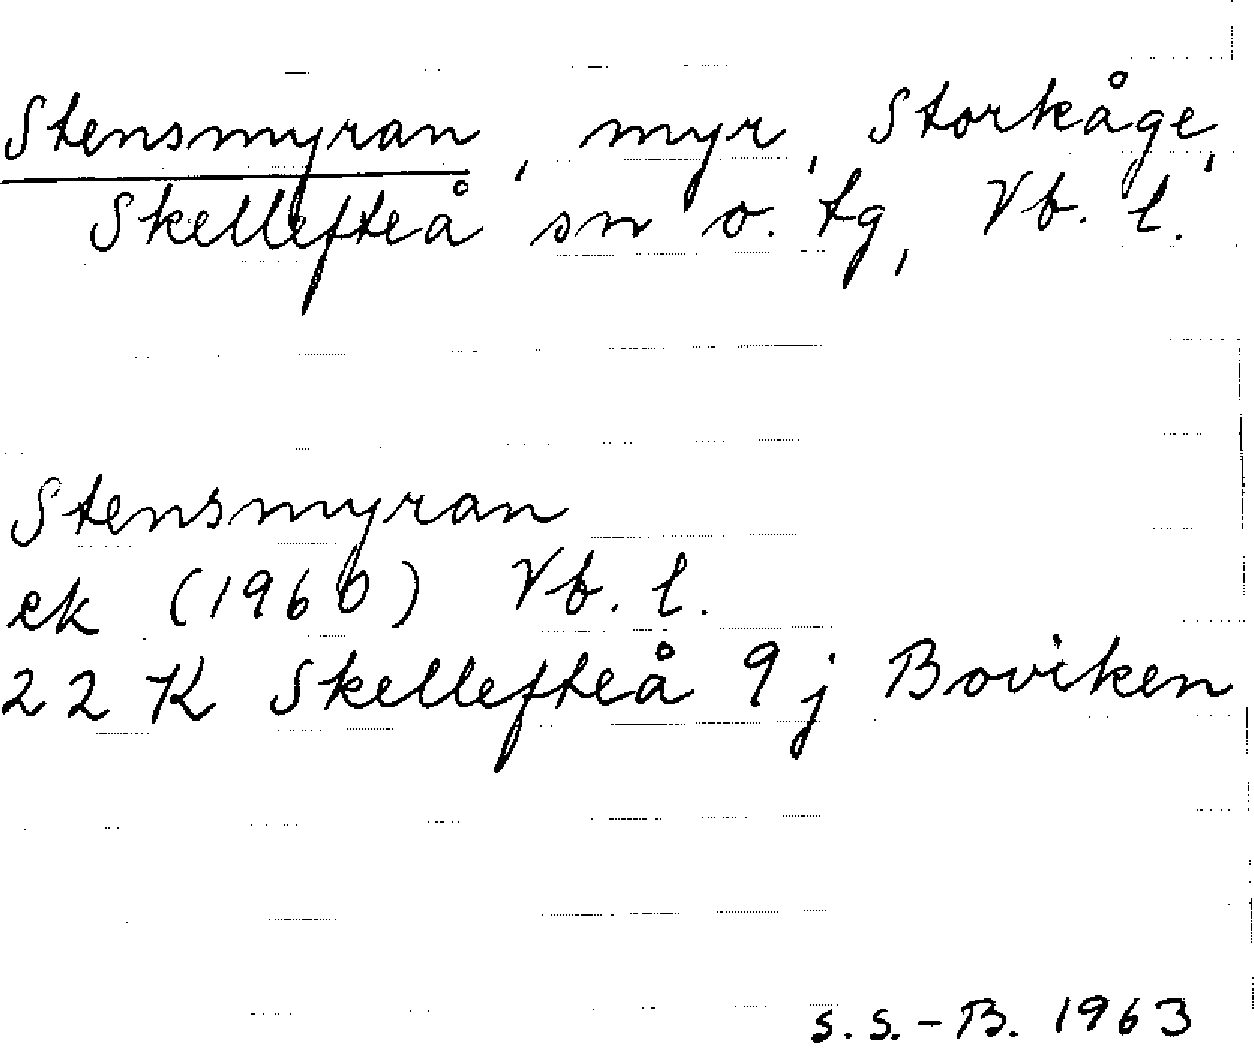 Stensmyran, myr, Storkåge,
Skellefteå sn o. tg, Vb. l.
Stensmyran
ek (1960) Vb. l.
22 K Skellefteå 9 j Boviken
S.S.-B. 1963